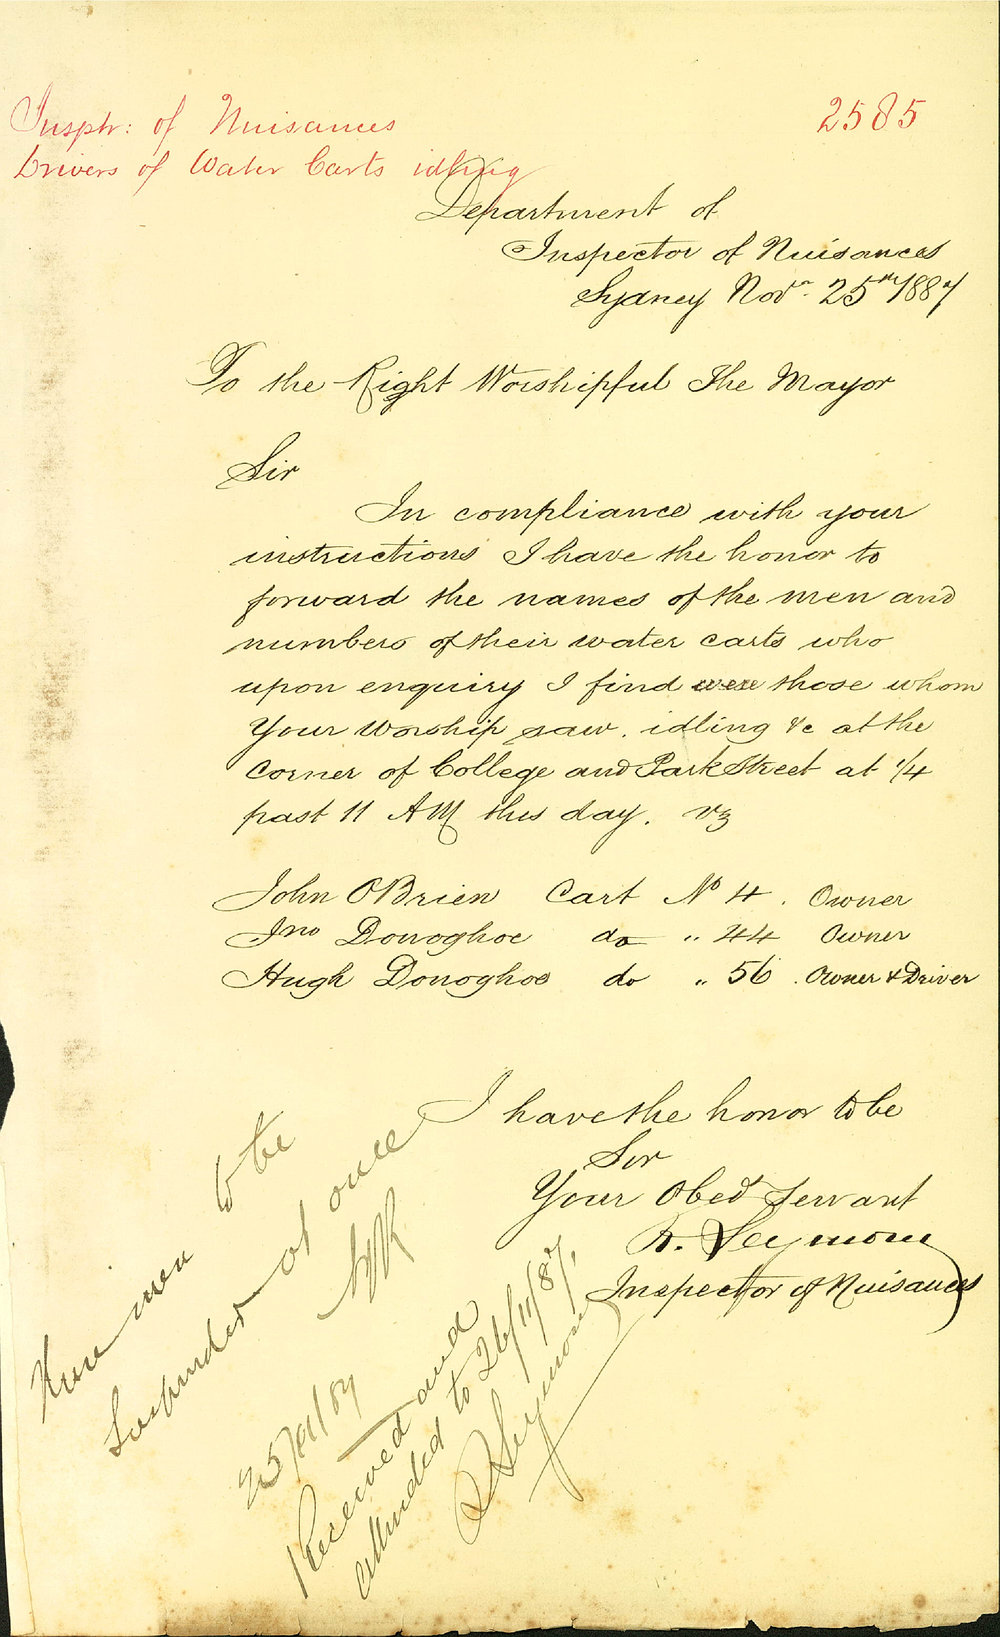 Insptr: of Nuisances
Drivers of Water Carts idling
2585
Department of
Inspector of Nuisances
Sydney Novr. 25th 1887
To the Right Worshipful The Mayor
Sir
In compliance with your
instructions I have the honor to
forward the names of the men and
numbers of their water carts who
upon enquiry I find were those whom
Your Worship saw. idling &c at the
corner of College and Park Street at 1/4
past 11 AM this day. vz
John OBrien Cart No 4. Owner
Jno Donoghoe do " 44 Owner
Hugh Donoghoe do " 56. Owner & Driver
I have the honor to be
Sir
Your Obed Servant
R. Seymour
Inspector of Nuisances
men to be
Suspended at once
25/11/87
Received and
attended to 26/11/87.
R Seymour